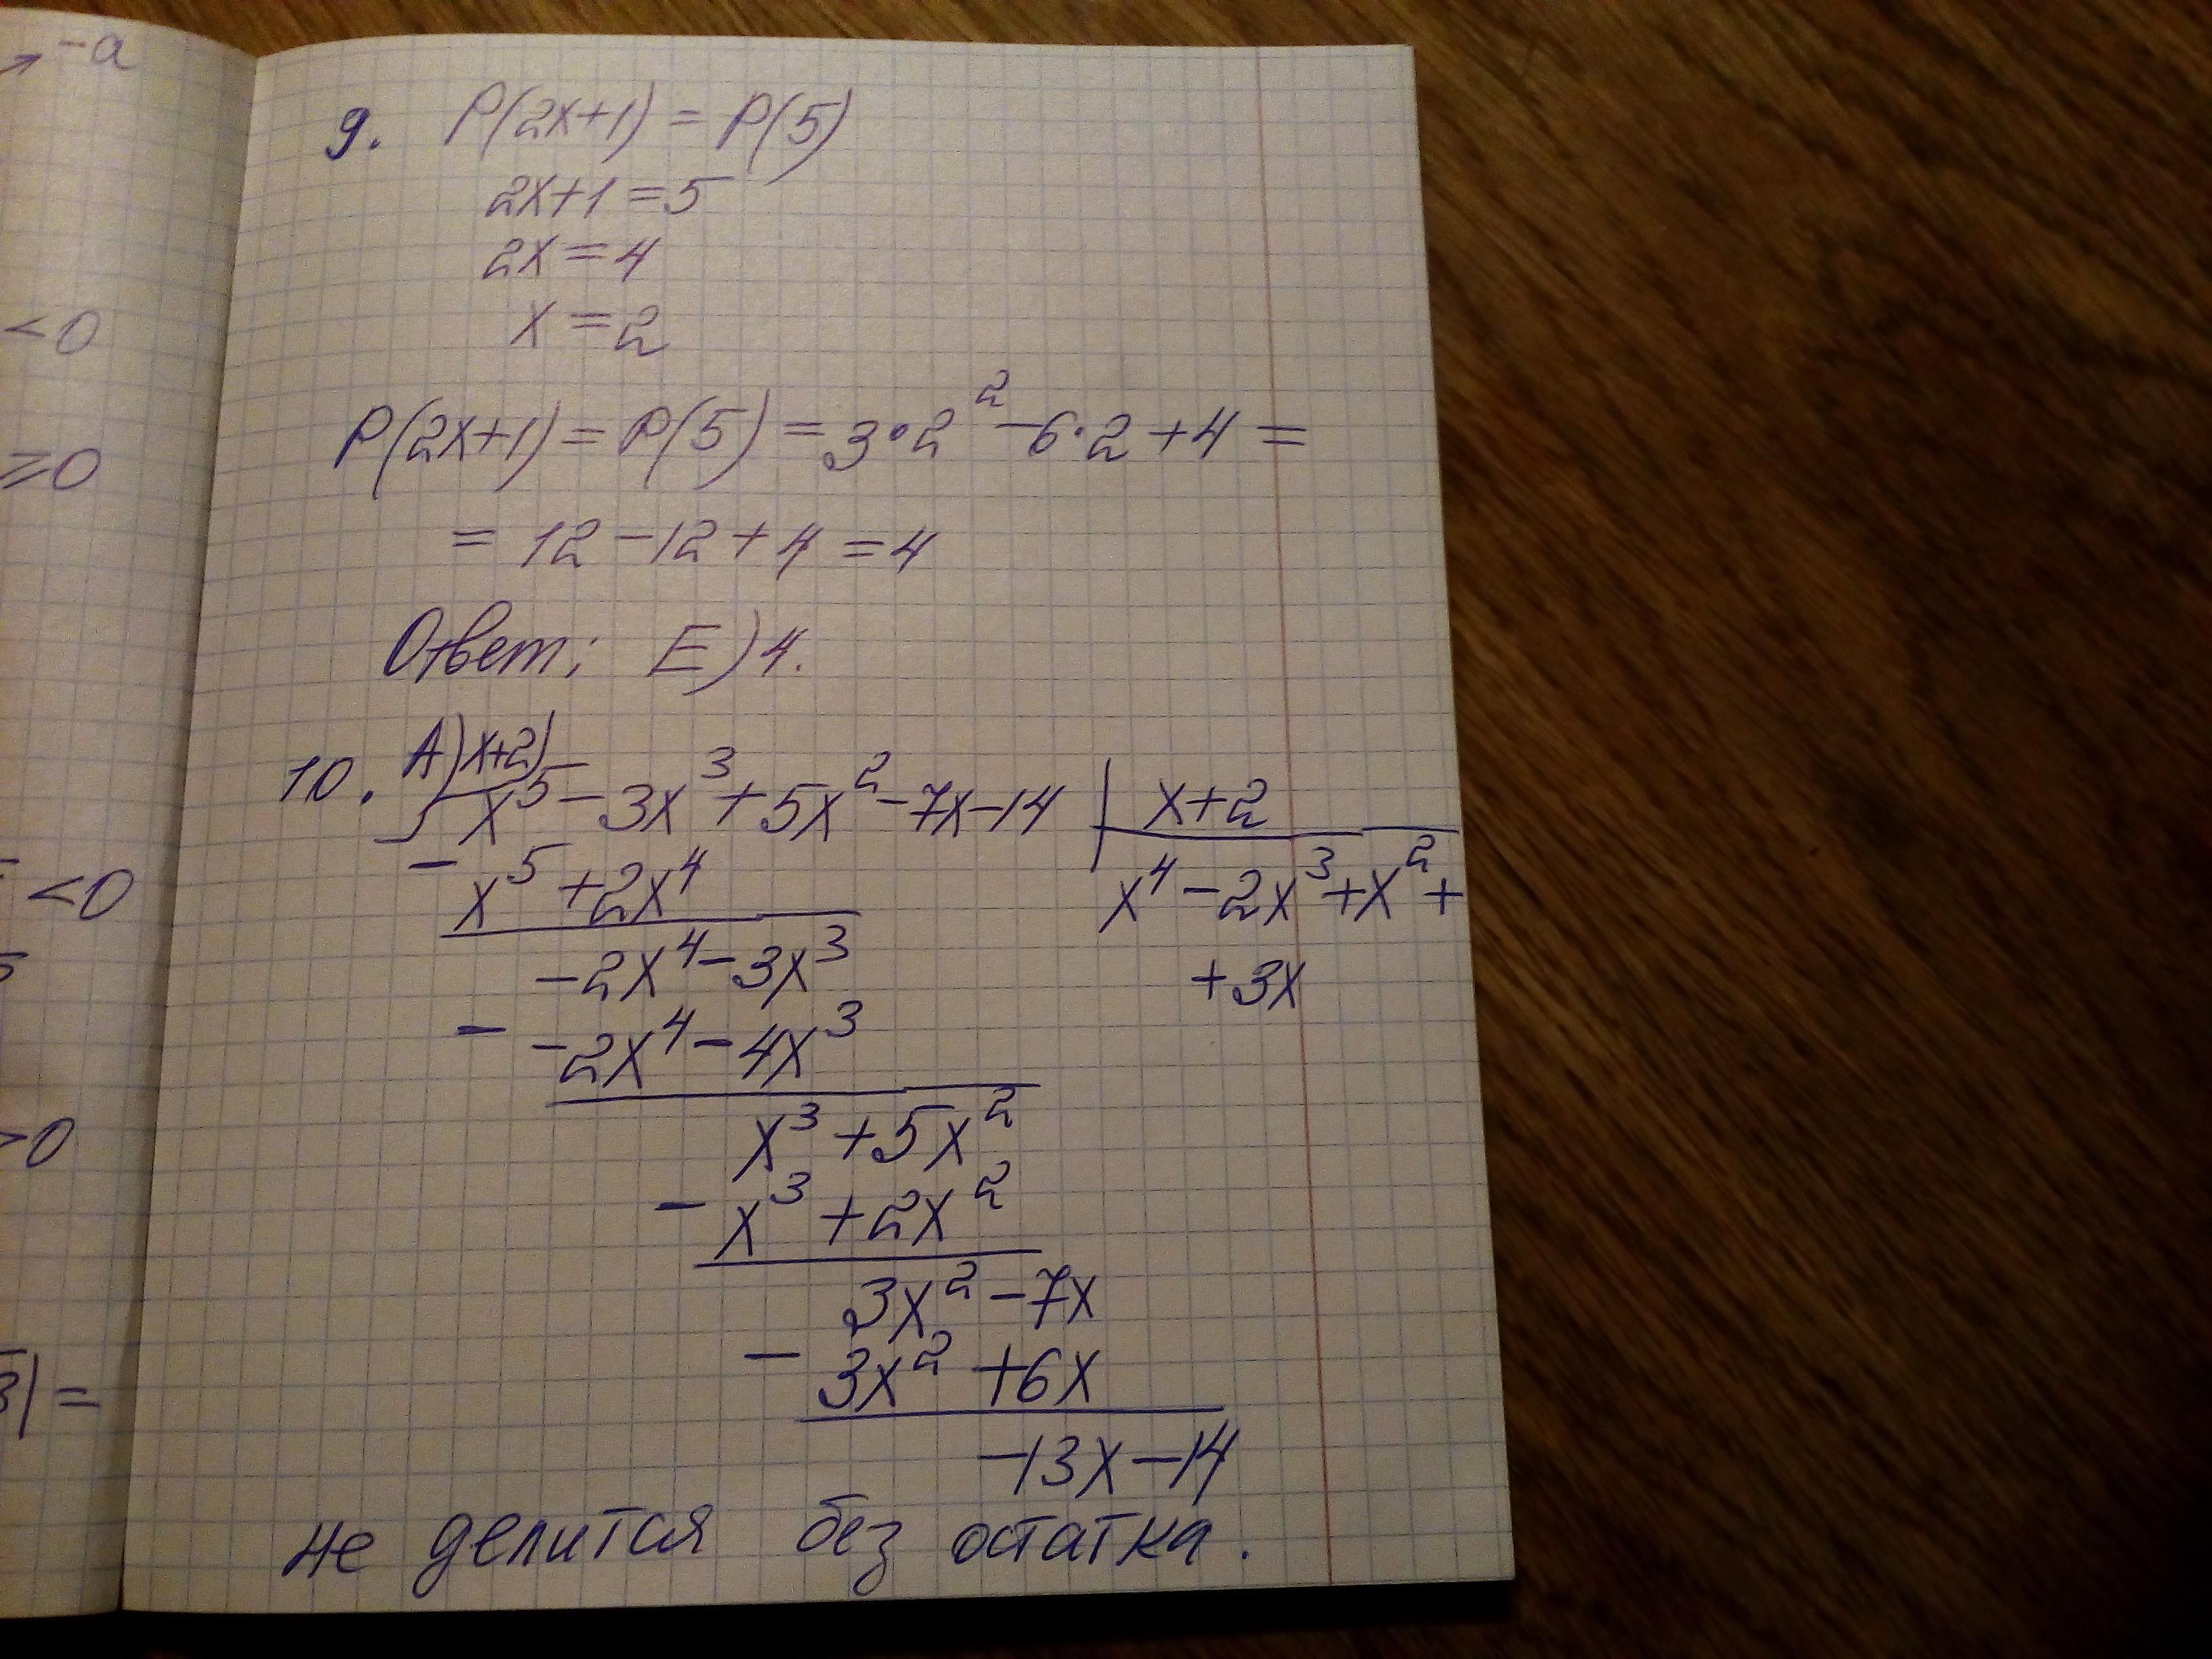 -a
<0
≥0
<0
>0
3| =
9. P(2x+1) = P(5)
2x+1 = 5
2x = 4
x = 2
P(2x+1) = P(5) = 3·2² - 6·2 + 4 =
= 12 - 12 + 4 = 4
Ответ: E) 4.
10. A) (x+2)
x⁵ - 3x³ + 5x² - 7x - 14 | x+2
- x⁵ + 2x⁴ x⁴ - 2x³ + x² +
-2x⁴ - 3x³ + 3x
- -2x⁴ - 4x³
x³ + 5x²
- x³ + 2x²
3x² - 7x
- 3x² + 6x
-13x - 14
не делится без остатка.